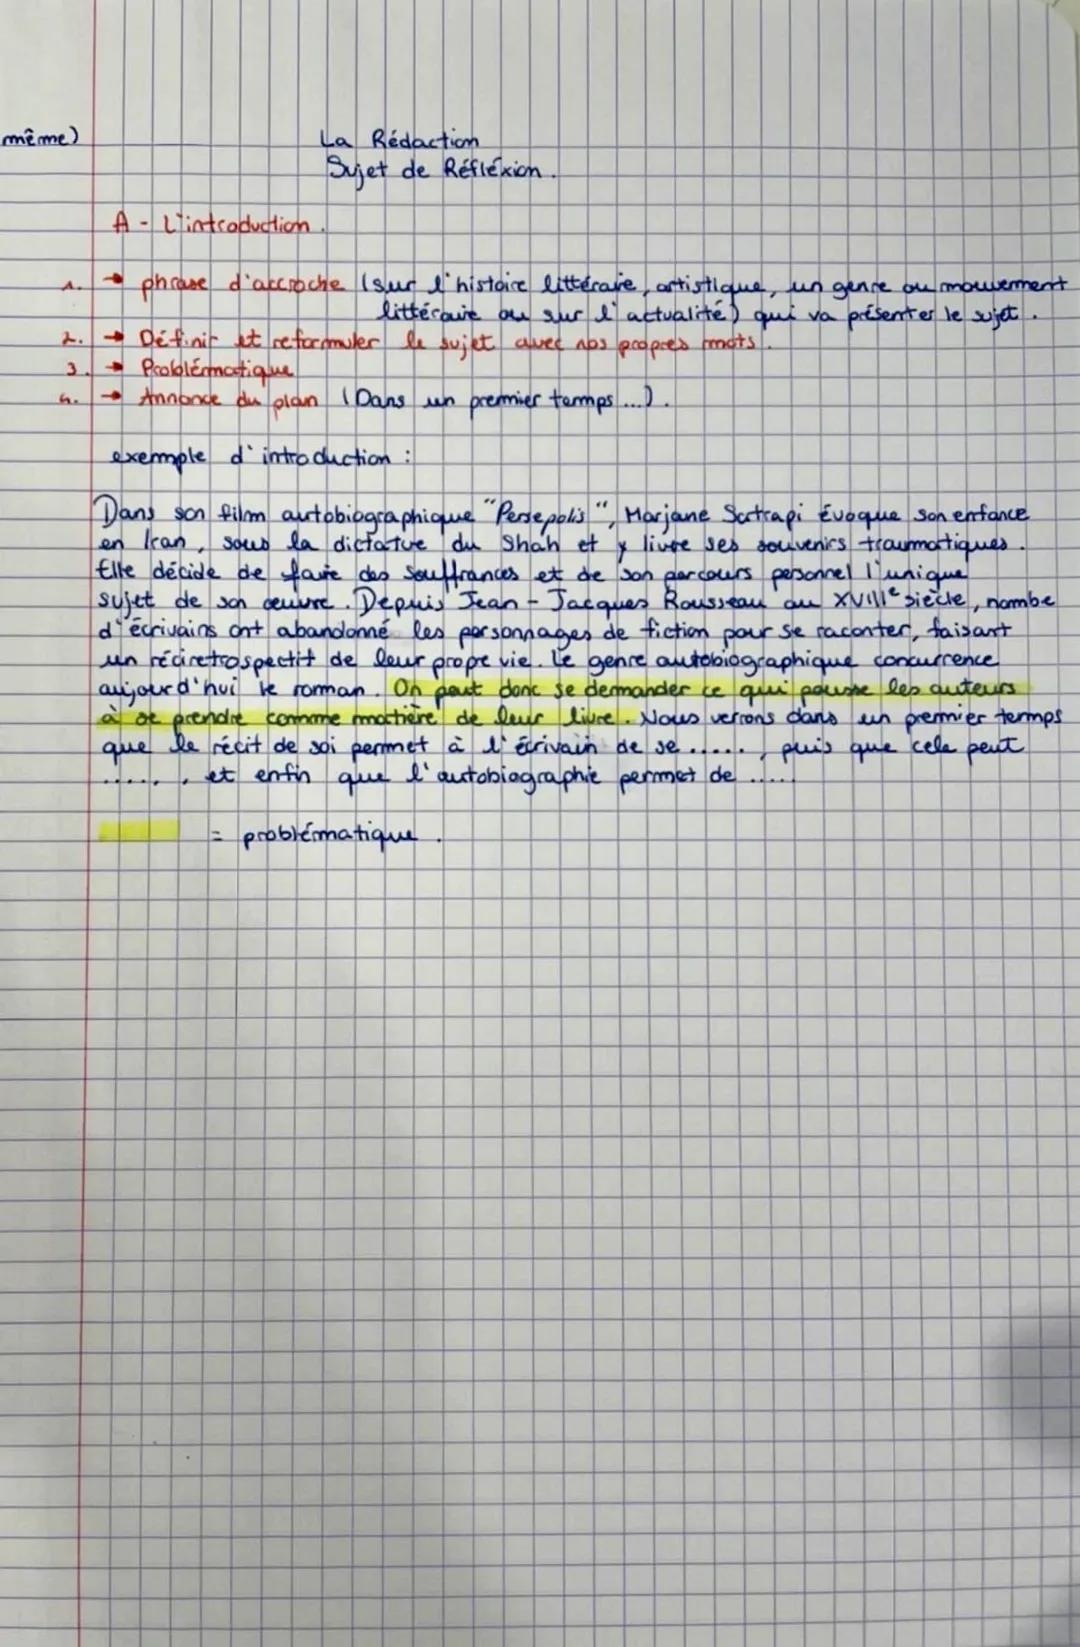 même)
La Rédaction
Sujet de Réfléxion.
A - L'introduction.
1. → phrase d'accroche (sur l'histoire littéraire, artistique, un genre ou mouvement
littéraire ou sur l'actualité) qui va présenter le sujet.
2. → Définir et reformuler le sujet avec nos propres mots.
3. → Problématique
4. → Annonce du plan (Dans un premier temps ...).
exemple d'introduction :
Dans son film autobiographique "Persepolis", Marjane Satrapi évoque son enfance
en Iran, sous la dictature du Shah et y livre ses souvenirs traumatiques.
Elle décide de faire des souffrances et de son parcours personnel l'unique
sujet de son œuvre. Depuis Jean-Jacques Rousseau au XVIIIe siècle, nombre
d'écrivains ont abandonné les personnages de fiction pour se raconter, faisant
un récit retrospectif de leur propre vie. Le genre autobiographique concurrence
aujourd'hui le roman. On peut donc se demander ce qui pousse les auteurs
à se prendre comme matière de leur livre. Nous verrons dans un premier temps
que le récit de soi permet à l'écrivain de se ......, puis que cela peut
......, et enfin que l'autobiographie permet de .....
= problématique.